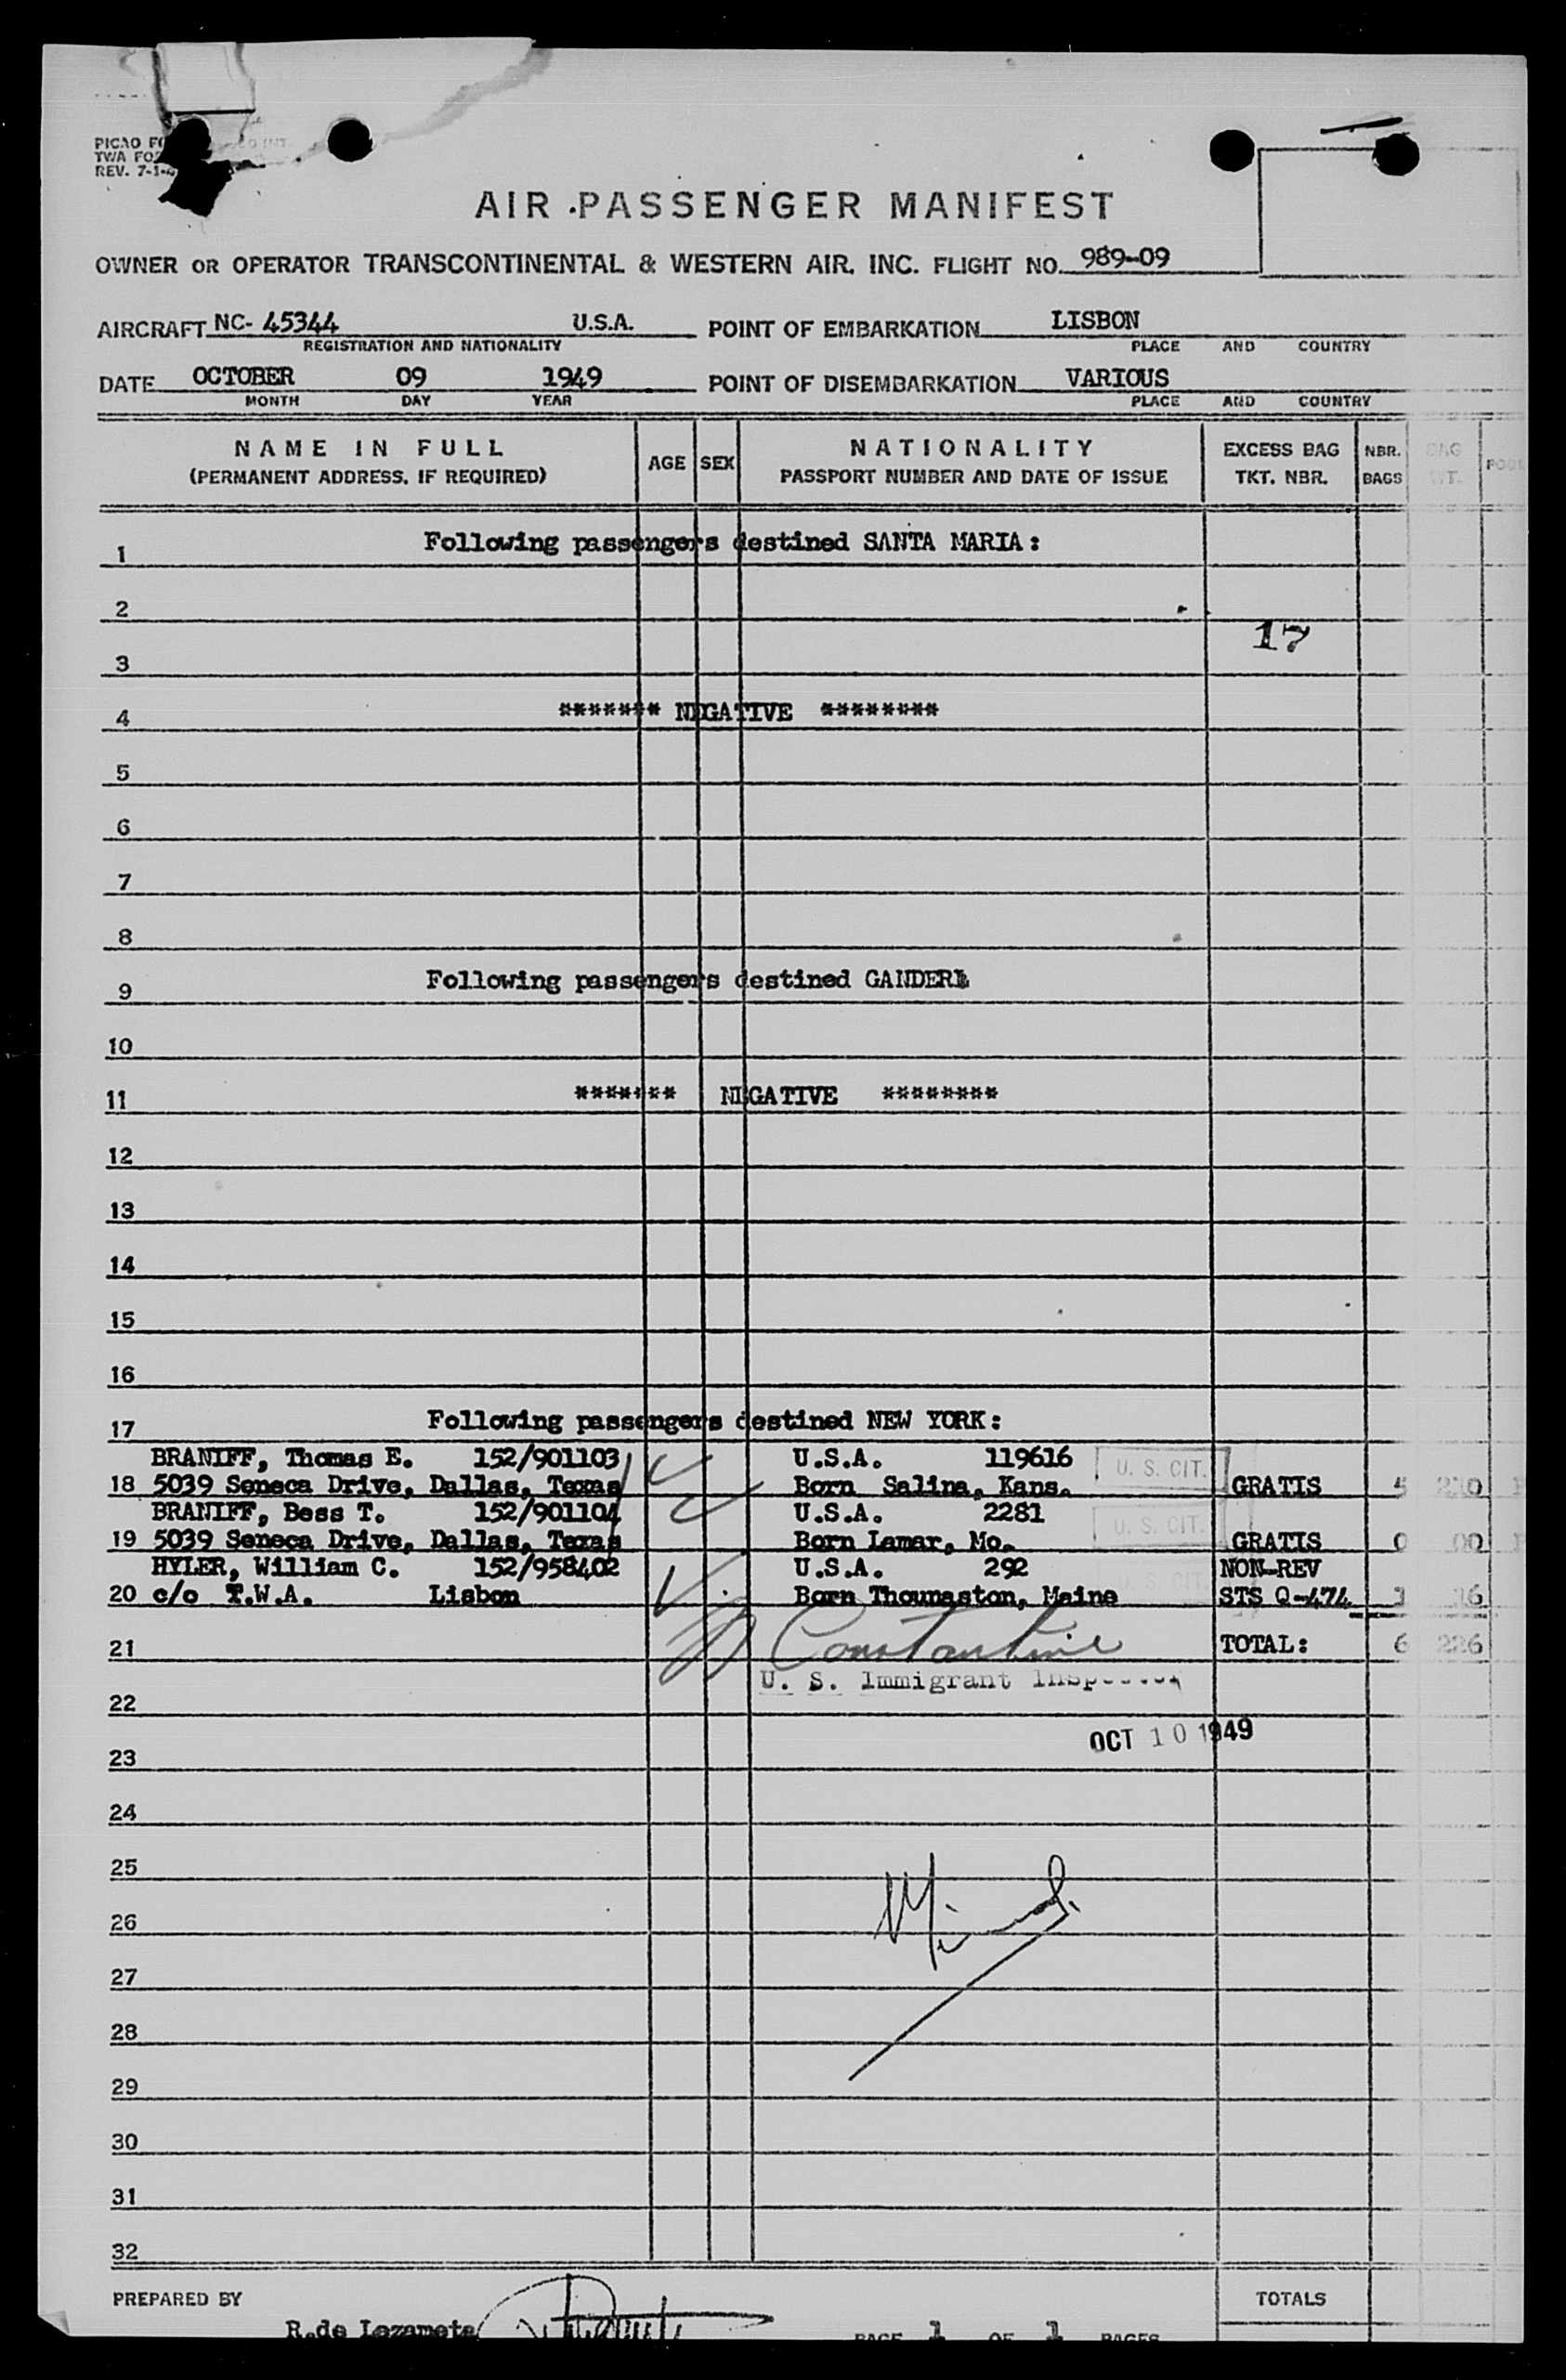 PICAO
TWA
REV. 7-1-4
AIR PASSENGER MANIFEST
OWNER OR OPERATOR TRANSCONTINENTAL & WESTERN AIR. INC. FLIGHT NO. 989-09
AIRCRAFT NC- 45344 U.S.A. POINT OF EMBARKATION LISBON
REGISTRATION AND NATIONALITY PLACE AND COUNTRY
DATE OCTOBER 09 1949 POINT OF DISEMBARKATION VARIOUS
MONTH DAY YEAR PLACE AND COUNTRY
NAME IN FULL AGE SEX NATIONALITY EXCESS BAG NBR. BAG
(PERMANENT ADDRESS, IF REQUIRED) PASSPORT NUMBER AND DATE OF ISSUE TKT. NBR. BAGS WT.
1 Following passengers destined SANTA MARIA:
2
17
3
4 ******* NEGATIVE ********
5
6
7
8
9 Following passengers destined GANDER
10
11 ******* NEGATIVE ********
12
13
14
15
16
17 Following passengers destined NEW YORK:
BRANIFF, Thomas E. 152/901103 U.S.A. 119616 U. S. CIT.
18 5039 Seneca Drive, Dallas, Texas Born Salina, Kans. GRATIS 5 210
BRANIFF, Bess T. 152/901104 U.S.A. 2281 U. S. CIT.
19 5039 Seneca Drive, Dallas, Texas Born Lamar, Mo. GRATIS 0 00
HYLER, William C. 152/958402 U.S.A. 292 U. S. CIT. NON-REV
20 c/o T.W.A. Lisbon Born Thounaston, Maine STS Q-474 1 16
21 Constantine TOTAL: 6 226
U. S. Immigrant Inspector
22
OCT 10 1949
23
24
25
26
27
28
29
30
31
32
PREPARED BY TOTALS
R.de Lozameta PAGE 1 OF 1 PAGES